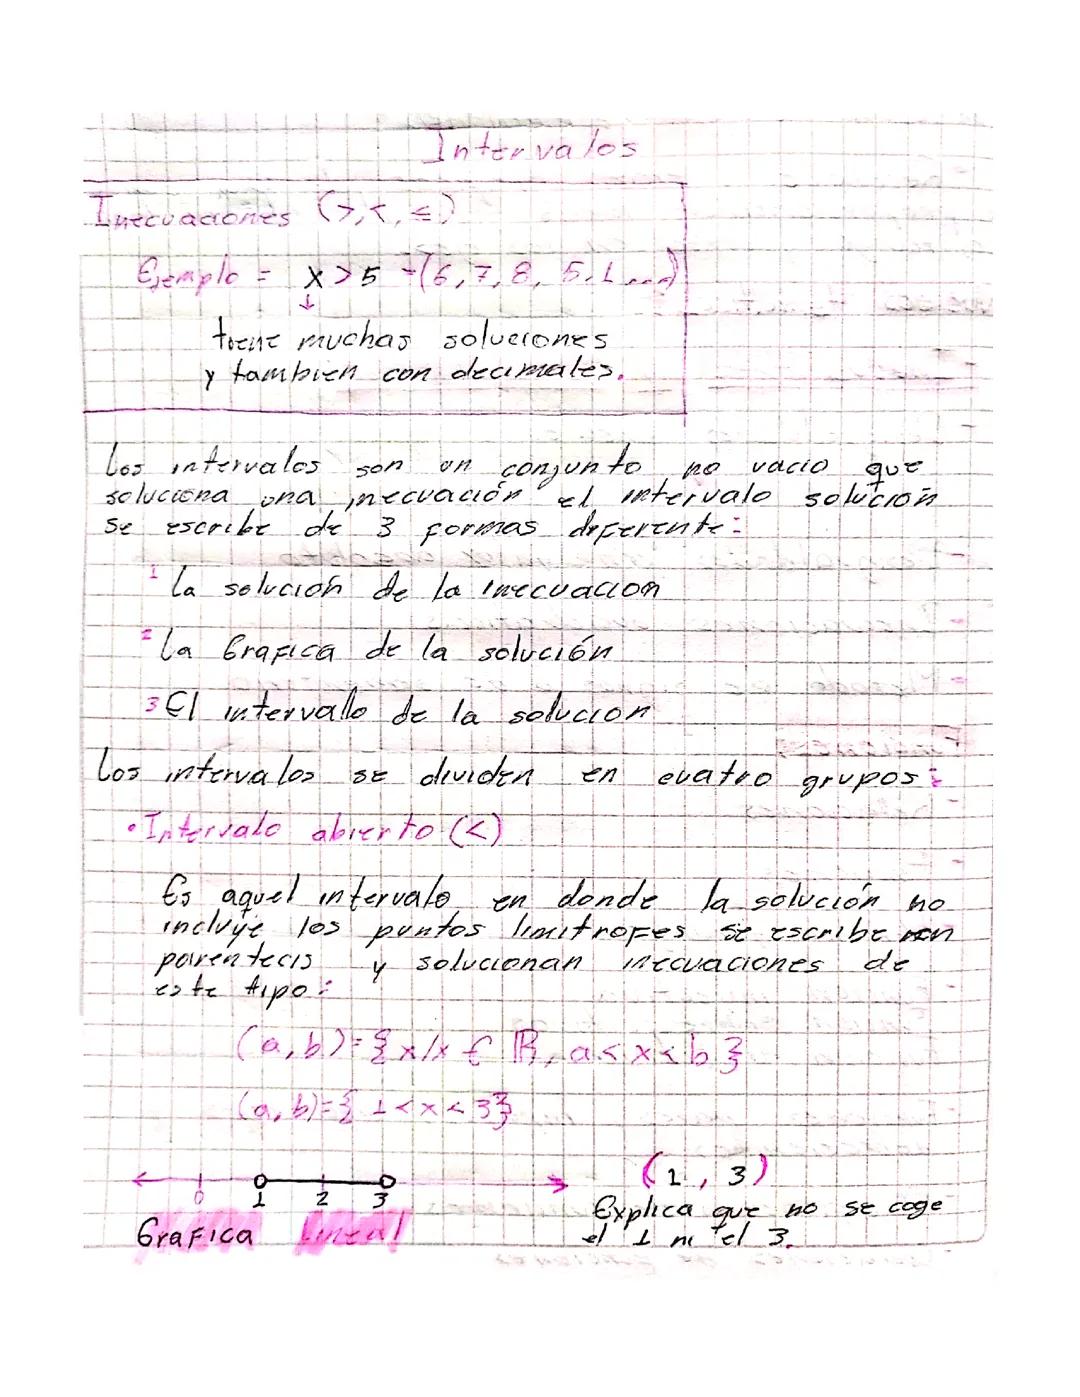 Intervalos
Inecuaciones (>, <, ≤)
Ejemplo = x > 5 → (6, 7, 8, 5.1 ...)
↓
tiene muchas soluciones
y tambien con decimales.
Los intervalos son un conjunto no vacio que
soluciona una inecuación el intervalo solución
se escribe de 3 formas diferente:
1 La solución de la inecuacion
2 La Grafica de la solución
3 El intervallo de la solucion
Los intervalos se dividen en cuatro grupos:
• Intervalo abierto (<)
Es aquel intervalo en donde la solución no
incluye los puntos limitrofes se escribe con
parentecis y solucionan inecuaciones de
este tipo:
(a, b) = {x/x ∈ ℝ, a < x < b}
(a, b) = { 1 < x < 3}
0 1 2 3
(1, 3)
Explica que no se coge
el 1 ni el 3.
Grafica lineal